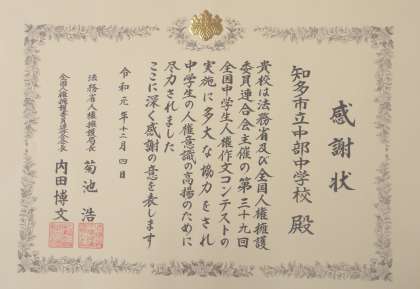 感謝状
知多市立中部中学校 殿
貴校は法務省及び全国人権擁護
委員連合会主催の第三十九回
全国中学生人権作文コンテストの
実施に多大な協力をされ
中学生の人権意識の高揚のために
尽力されました
ここに深く感謝の意を表します
令和元年十二月四日
法務省人権擁護局長 菊池 浩
全国人権擁護委員連合会長 内田博文